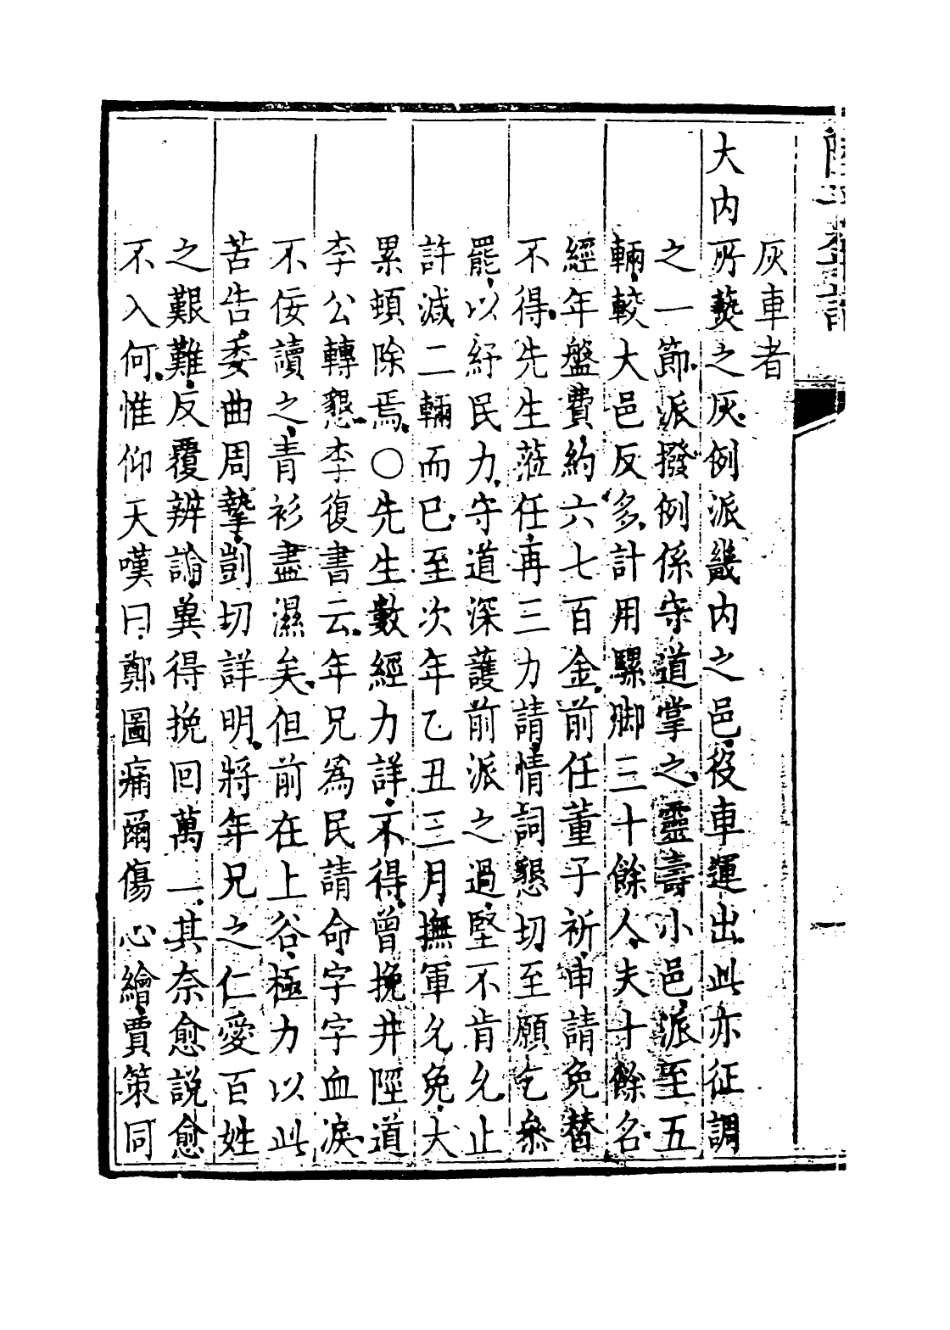 灰車者
大内所爇之灰例派畿内之邑役車運出此亦征調
之一節派撥例係守道掌之靈壽小邑派至五
輛較大邑反多計用騾脚三十餘人夫十餘名
經年盤費約六七百金前任董子祈申請免替
不得先生蒞任再三力請情詞懇切至願乞叅
罷以紓民力守道深護前派之過堅不肯允止
許減二輛而已至次年乙丑三月撫軍允免大
累頓除焉○先生數經力詳不得曾挽井陘道
李公轉懇李復書云年兄爲民請命字字血淚
不佞讀之青衫盡濕矣但前在上谷極力以此
苦告委曲周摯剴切詳明將年兄之仁愛百姓
之艱難反覆辨論冀得挽回萬一其奈愈説愈
不入何惟仰天嘆曰鄭圖痛爾傷心繪賈策同